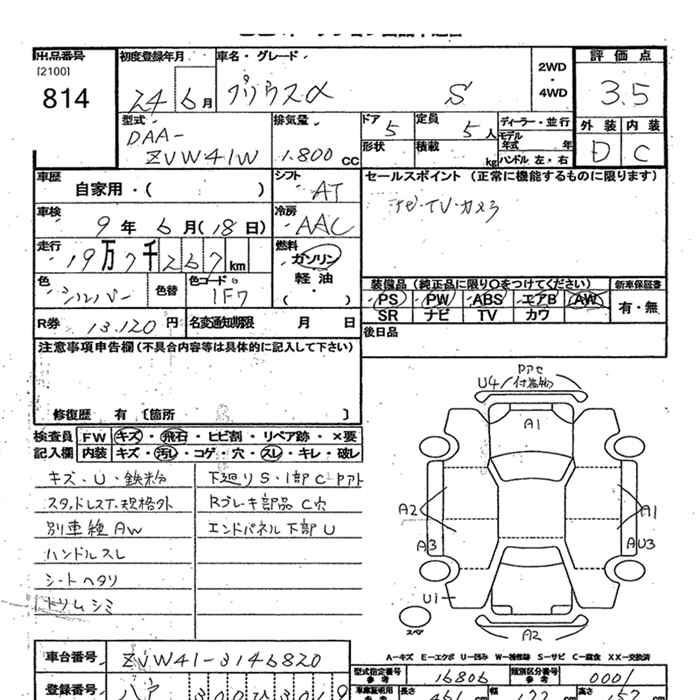 出品番号 初度登録年月 車名・グレード 評価点
[2100]
814 24 6月 プリウスα S 2WD・4WD 3.5
型式 排気量 ドア 5 定員 5人 ディーラー・並行 外装 内装
DAA- 形状 積載 kg モデル年式 年 D C
ZVW41W 1.800cc ハンドル 左・右
車歴 自家用・( ) シフト AT セールスポイント(正常に機能するものに限ります)
車検 9年 6月(18日) 冷房 AAC ナビ・TV・カメラ
走行 19万7千267km 燃料 ガソリン
軽油
( )
色 シルバー 色替 色コード 1F7 装備品(純正品に限り○をつけてください) 新車保証書
PS・PW・ABS・エアB・AW 有・無
SR ナビ TV カワ
R券 13.120円 名変通知期限 月 日 後日品
注意事項申告欄(不具合内容等は具体的に記入して下さい)
修復歴 有〔箇所 〕
検査員 FW キズ・飛石・ヒビ割・リペア跡・×要
記入欄 内装 キズ・汚レ・コゲ・穴・スレ・キレ・破レ
キズ・U・鉄粉 下廻りS・1部C PアT
スタッドレスT・規格外 Rブレーキ部品C穴
別車種AW エンドパネル下部U
ハンドルスレ
シートヘタリ
トリムシミ
U4/付着物
A1
A2 A1
A3 AU3
U1
スペア A2
A－キズ E－エクボ U－凹み W－補修跡 S－サビ C－腐食 XX－交換済
車台番号 ZVW41-3146820 型式指定番号 16806 類別区分番号 0001
参考 参考
登録番号 長さ 461cm 幅 177cm 高さ 157cm